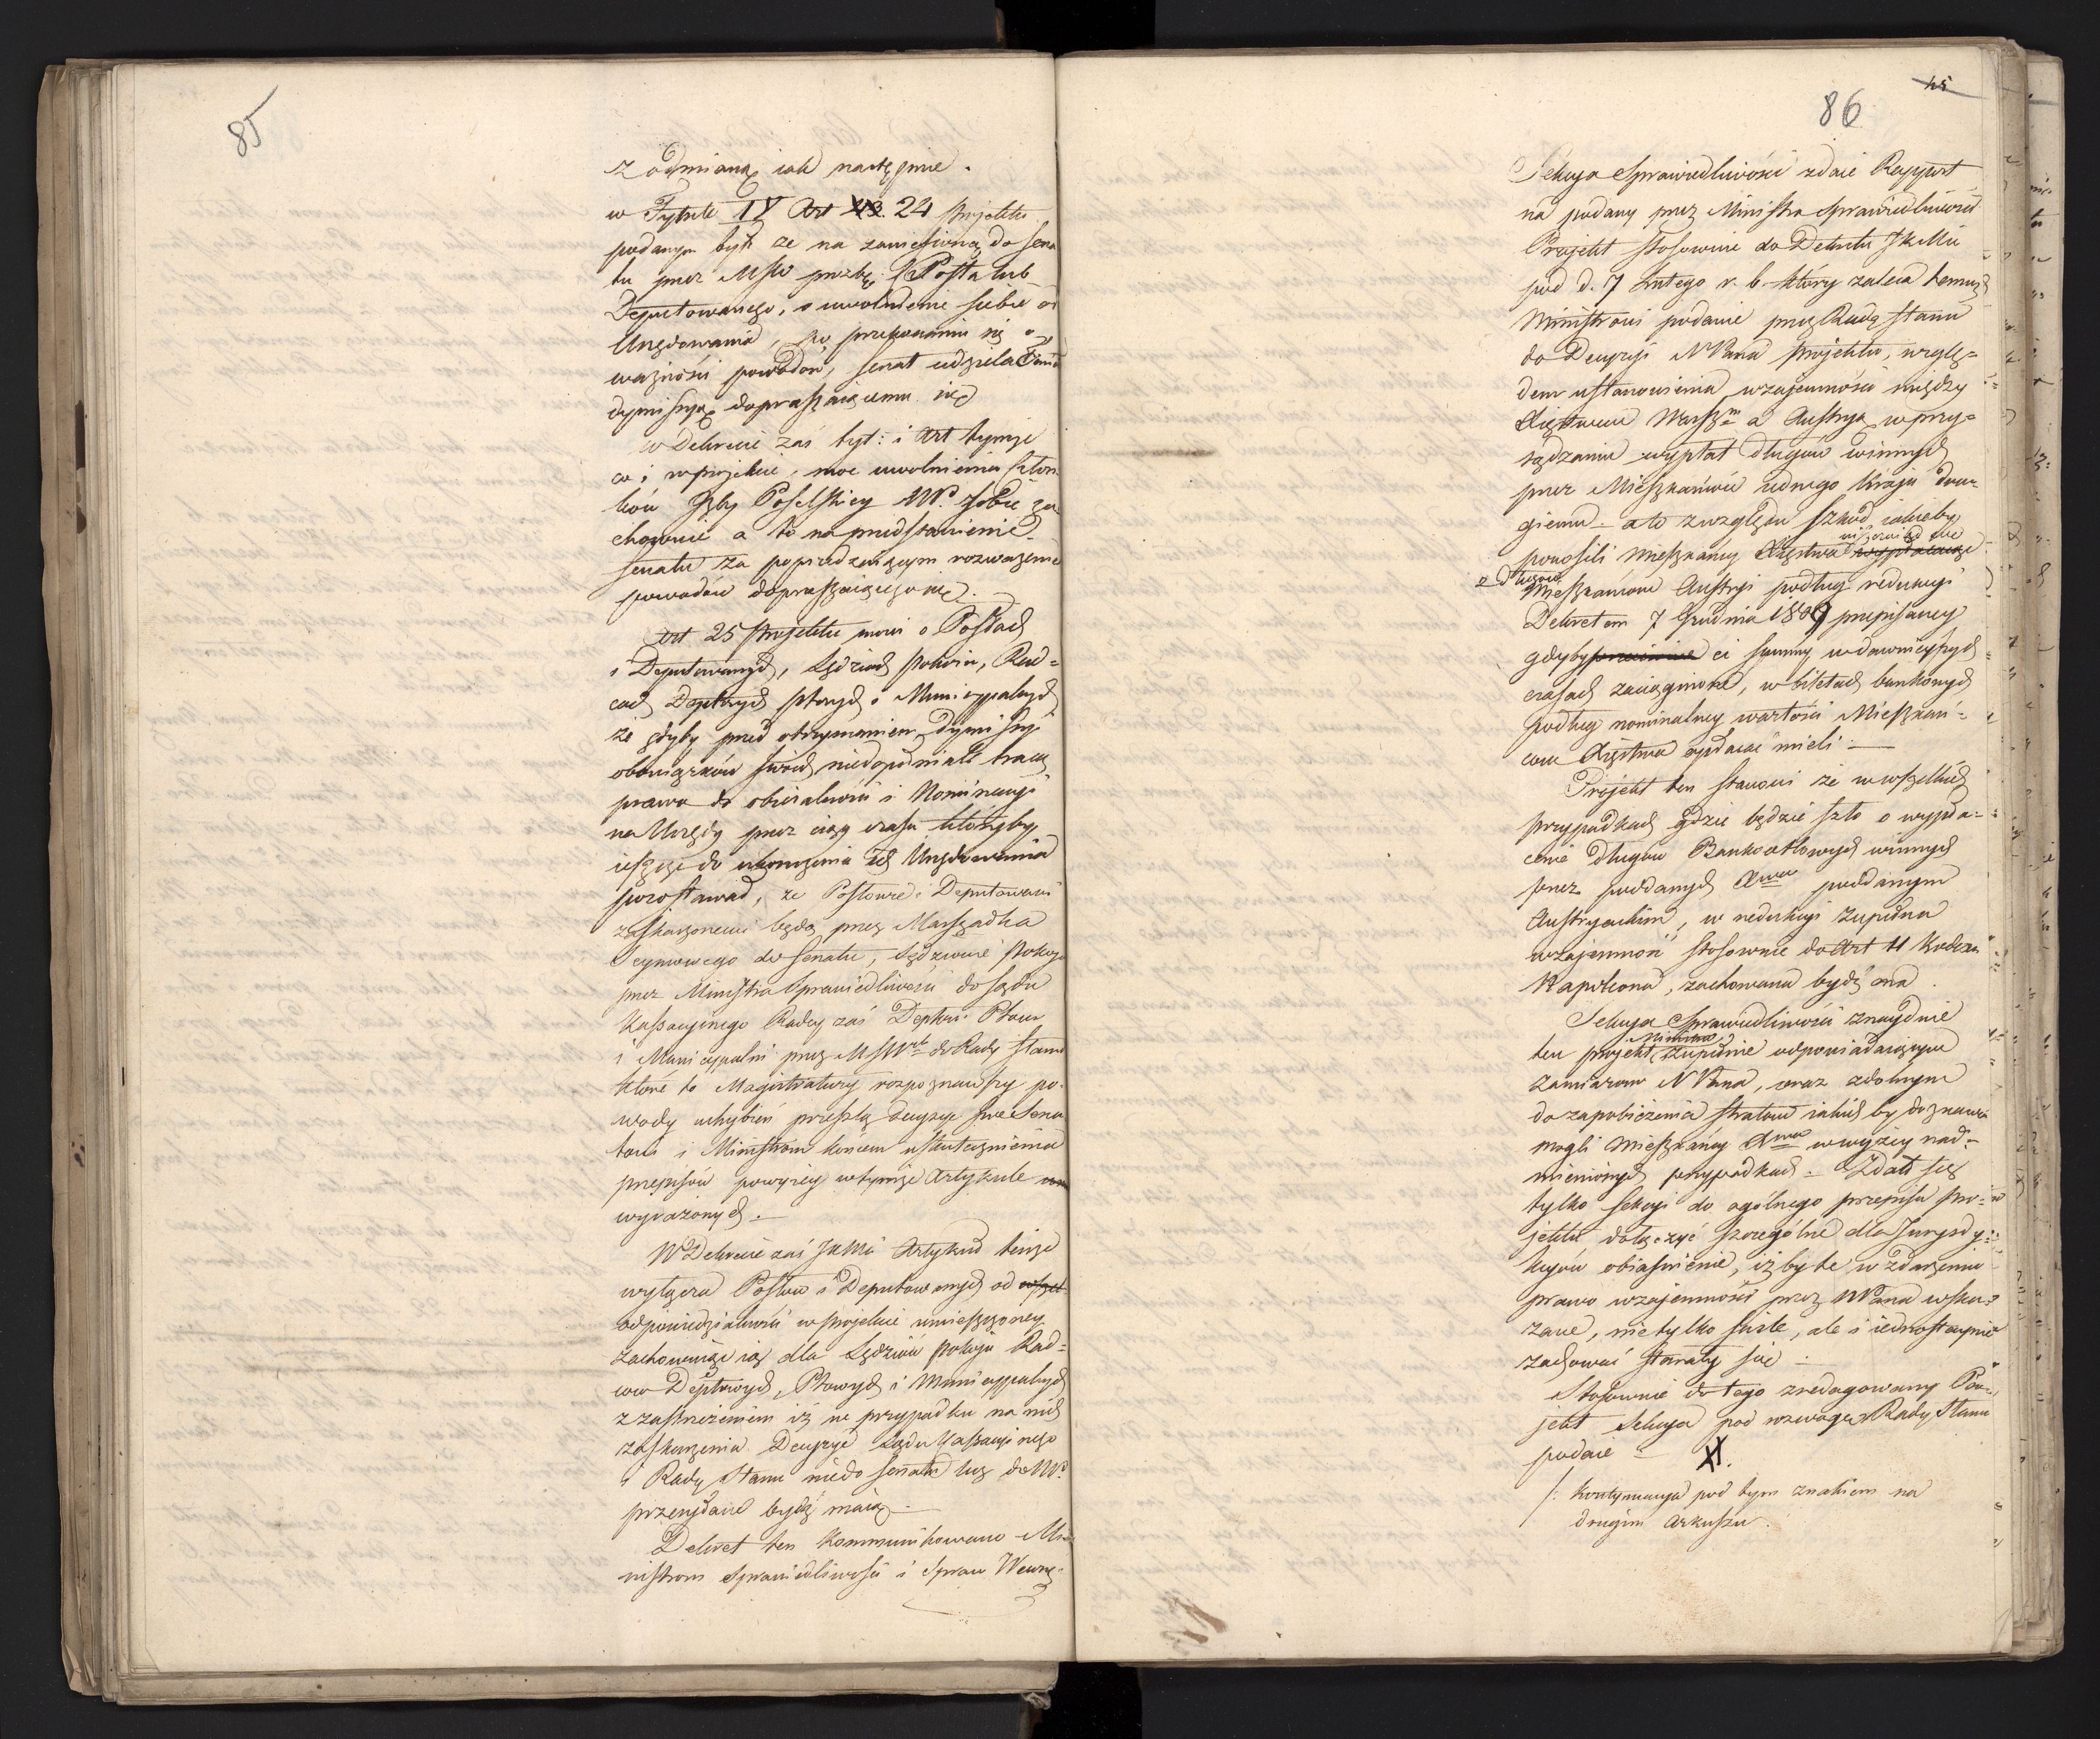 85
z odmianą iak następnie.
w Tytule IV Art 24 projektu
podanym było że na zaniesioną do Sena
tu przez MSW prozbę Posła lub
Deputowanego, o uwolnienie siebie od
Urzędowania, po przekonaniu się o
ważności powodów, Senat udziela
dymissyą dopraszaiącemu się
w Dekrecie zaś tyt: i Art tymże
co i w projekcie, moc uwolnienia Człon
ków Izby Poselskiey NP. sobie za
chowuie a to na przedstawienie
Senatu za poprzedzaiącym rozważeniem
powodów dopraszaiącego się.
Art 25 projektu mówi o Posłach
i Deputowanych, Sędziach pokoiu, Rad=
cach Deptwych ptwych i Municypalnych
że gdyby przed otrzymaniem dymissyi
obowiązków swoich niedopełniali tracą
prawo do obieralności i Nominacyi
na Urzędy przez ciąg czasu któryby
ieszcze do ukończenia ich Urzędowania
pozostawał, że Posłowie i Deputowani
zaskarżonemi będą przez Marszałka
Seymowego do Senatu, Sędziowie pokoju
przez Ministra Sprawiedliwości do Sądu
Kassacyinego Radcy zaś Deptwi Ptowi
i Municypalni przez MSW do Rady Stanu
które to Magistratury rozpoznawszy po-
wody uchybień prześlą decyzye swe Sena
towi i Ministrom końcem uskutecznienia
przepisów powyżey w tymże Artykule
wyrażonych.
W Dekrecie zaś JKMci Artykuł tenże
wyłącza Posłów i Deputowanych od
odpowiedzialności w projekcie umieszczoney
zachowuiąc ią dla Sędziów pokoju Rad=
ców Deptowych, Ptowych i Municypalnych
z zastrzeżeniem iż w przypadku na nich
zaskarżenia Decyzye Sądu Kassacyinego
i Rady Stanu nie do Senatu lecz do NP.
przesyłane bydź maią.
Dekret ten kommunikowano Mi
nistrom Sprawiedliwości i Spraw Wewnę=
45
86
Sekcya Sprawiedliwości zdaie Rapport
na podany przez Ministra Sprawiedliwości
Projekt stosownie do Dekretu JKMci
pod d. 7 Lutego r. b. który zaleca temuż
Ministrowi podanie przez Radę Stanu
do Decyzyi NPana projektu, wzglę=
dem ustanowienia wzajemności między
Xięstwem Warszm a Austryą w przy=
sądzaniu wypłat długów winnych
przez Mieszkańców iednego kraju dru-
giemu – a to z względu szkód iakieby
ponosili Mieszkańcy Xięstwa wypłacaiąc
długów
Mieszkańcom Austryi podług redukcyi
Dekretem 7 Grudnia 1809 przepisaney
gdyby ci summy w dawnieyszych
czasach zaciągnione, w biletach bankowych
podług nominalney wartości Mieszkań=
com Xięstwa wypłacać mieli.
Projekt ten stanowi że w wszelkich
przypadkach gdzie będzie szło o wypła=
cenie długów Bankocetlowych winnych
przez poddanych Xtwa poddanym
Austryackim, w redukcyi zupełna
wzajemność stosownie do Art 11 Kodexu
Napoleona, zachowana bydź ma.
Sekcya Sprawiedliwości znayduie
ten projekt Ministra zupełnie odpowiadaiącym
zamiarom NPana, oraz zdolnym
do zapobieżenia stratom iakich by doznawać
mogli Mieszkańcy Xtwa w wyżey nad=
mienionych przypadkach. Zdało się
tylko Sekcyi do ogólnego przepisu pro=
jektu dołączyć szczególne dla Jurysdy=
kcyów obiaśnienie, iżby te w zdarzeniu
prawo wzajemności przez NPana wska=
zane, nietylko ściśle, ale i iednostaynie
zachować starały się.
Stosownie do tego zredagowany Pro=
jekt Sekcya pod rozwagę Rady Stanu
podaie – XI.
/: Kontynuacya pod tym znakiem na
drugim arkuszu.